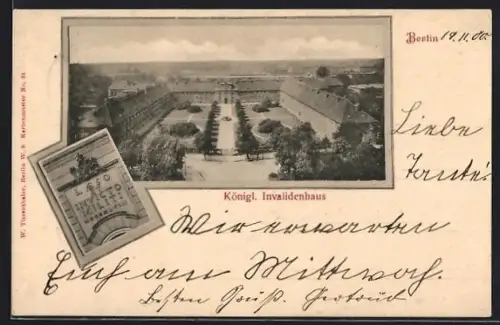 Berlin 19.11.00.
W. Titzenthaler, Berlin W. 8 Kartenmuster No. 31
LAESO
INVICTO
MILITI
Königl. Invalidenhaus
Liebe
Tante!
Wir erwarten
Euch am Mittwoch.
Besten Gruß. Gertrud